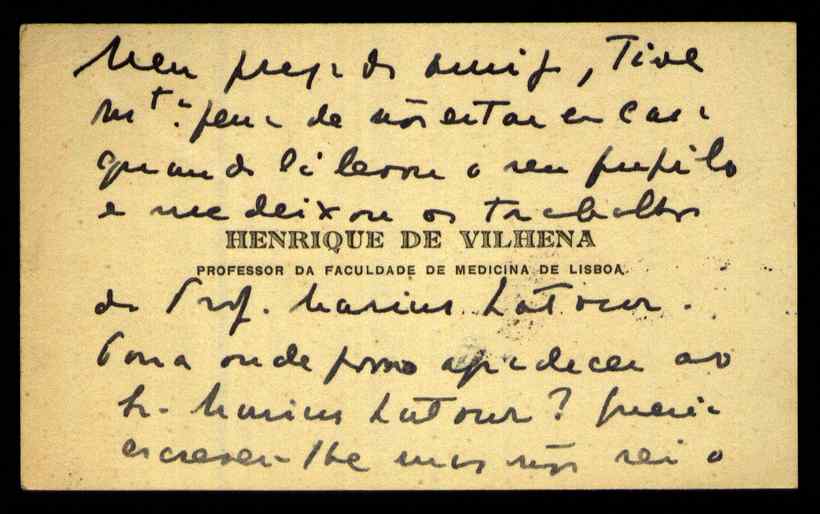 Meu presado amigo, Tive
mta. pena de não estar em casa
quando lá levou o seu pupilo
e me deixou os trabalhos
HENRIQUE DE VILHENA
PROFESSOR DA FACULDADE DE MEDICINA DE LISBOA.
do Prof. Marius Latour.
Para onde posso agradecer ao
Sr. Marius Latour? Queria
escrever-lhe mas não sei o